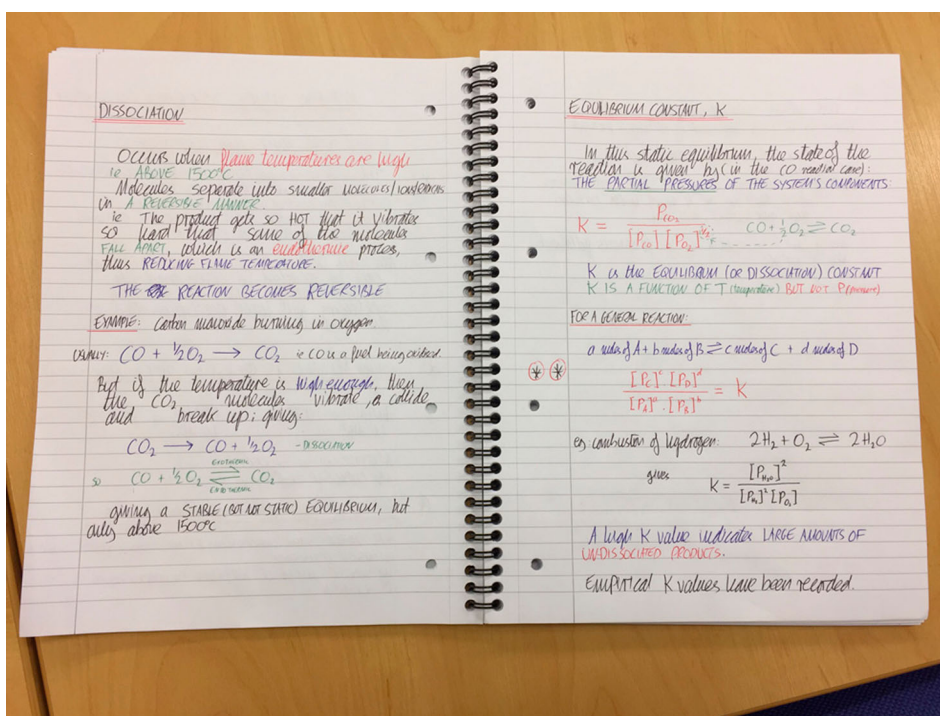 DISSOCIATION
Occurs when flame temperatures are high
ie ABOVE 1500°C
Molecules separate into smaller molecules/
in A REVERSIBLE MANNER.
ie The product gets so HOT that it vibrates
so hard that some of the molecules
FALL APART, which is an endothermic process,
thus REDUCING FLAME TEMPERATURE.
THE REACTION BECOMES REVERSIBLE
EXAMPLE: Carbon monoxide burning in oxygen.
USUALLY: CO + ½O₂ → CO₂ ie CO is a fuel being oxidised.
But if the temperature is high enough, then
the CO₂ molecules vibrate, a collide
and break up; giving:
CO₂ → CO + ½O₂ - DISSOCIATION
EXOTHERMIC
so CO + ½O₂ ⇌ CO₂
ENDOTHERMIC
giving a STABLE (BUT NOT STATIC) EQUILIBRIUM, but
only above 1500°C
EQUILIBRIUM CONSTANT, K
In this static equilibrium, the state of the
reaction is given by (in the CO reaction case):
THE PARTIAL PRESSURES OF THE SYSTEM'S COMPONENTS:
K = P_CO₂ / [P_CO][P_O₂]^½ CO + ½O₂ ⇌ CO₂
K is the EQUILIBRIUM (OR DISSOCIATION) CONSTANT
K IS A FUNCTION OF T (temperature) BUT NOT P (pressure)
FOR A GENERAL REACTION:
a moles of A + b moles of B ⇌ c moles of C + d moles of D
[P_C]^c . [P_D]^d / [P_A]^a . [P_B]^b = K
eg combustion of hydrogen: 2H₂ + O₂ ⇌ 2H₂O
gives K = [P_H₂O]² / [P_H₂]² [P_O₂]
A high K value indicates LARGE AMOUNTS OF
UNDISSOCIATED PRODUCTS.
Empirical K values have been recorded.